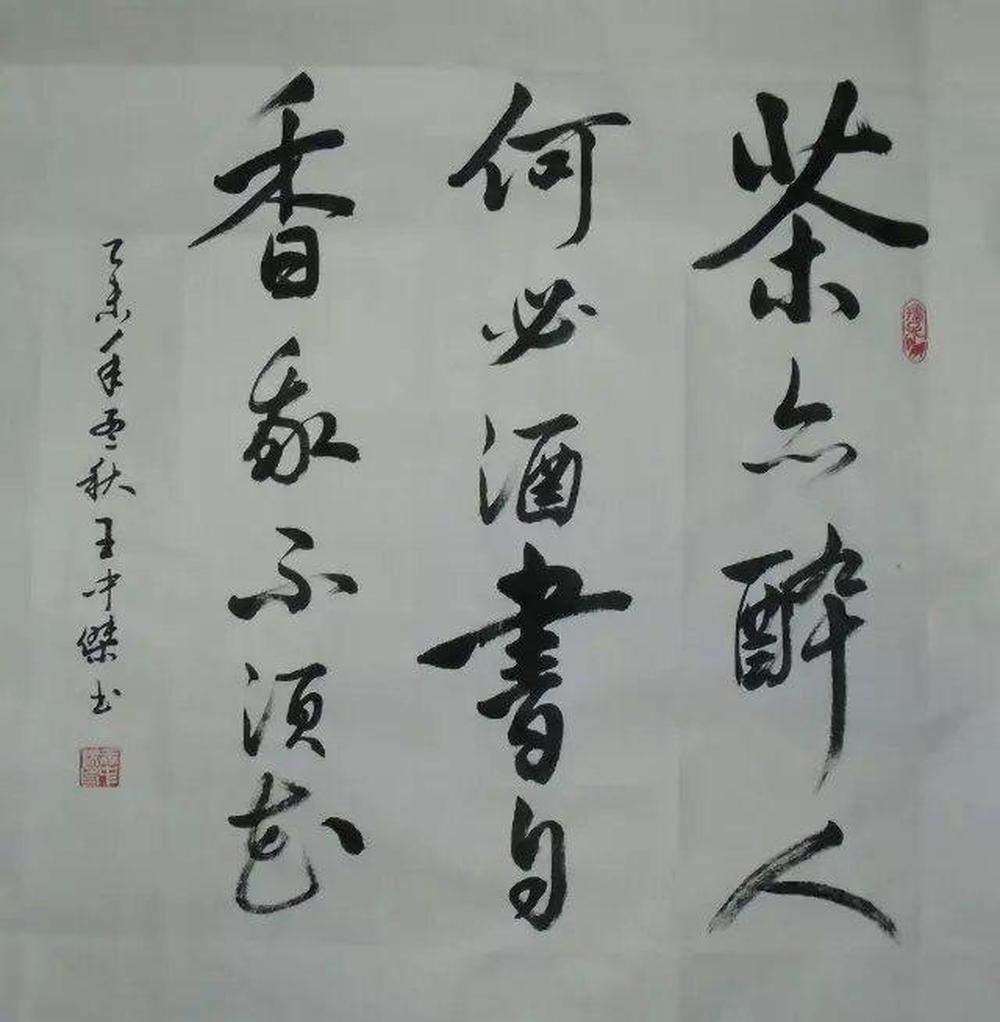 茶亦醉人
何必酒書自
香我不須花
乙未年秋王中傑书